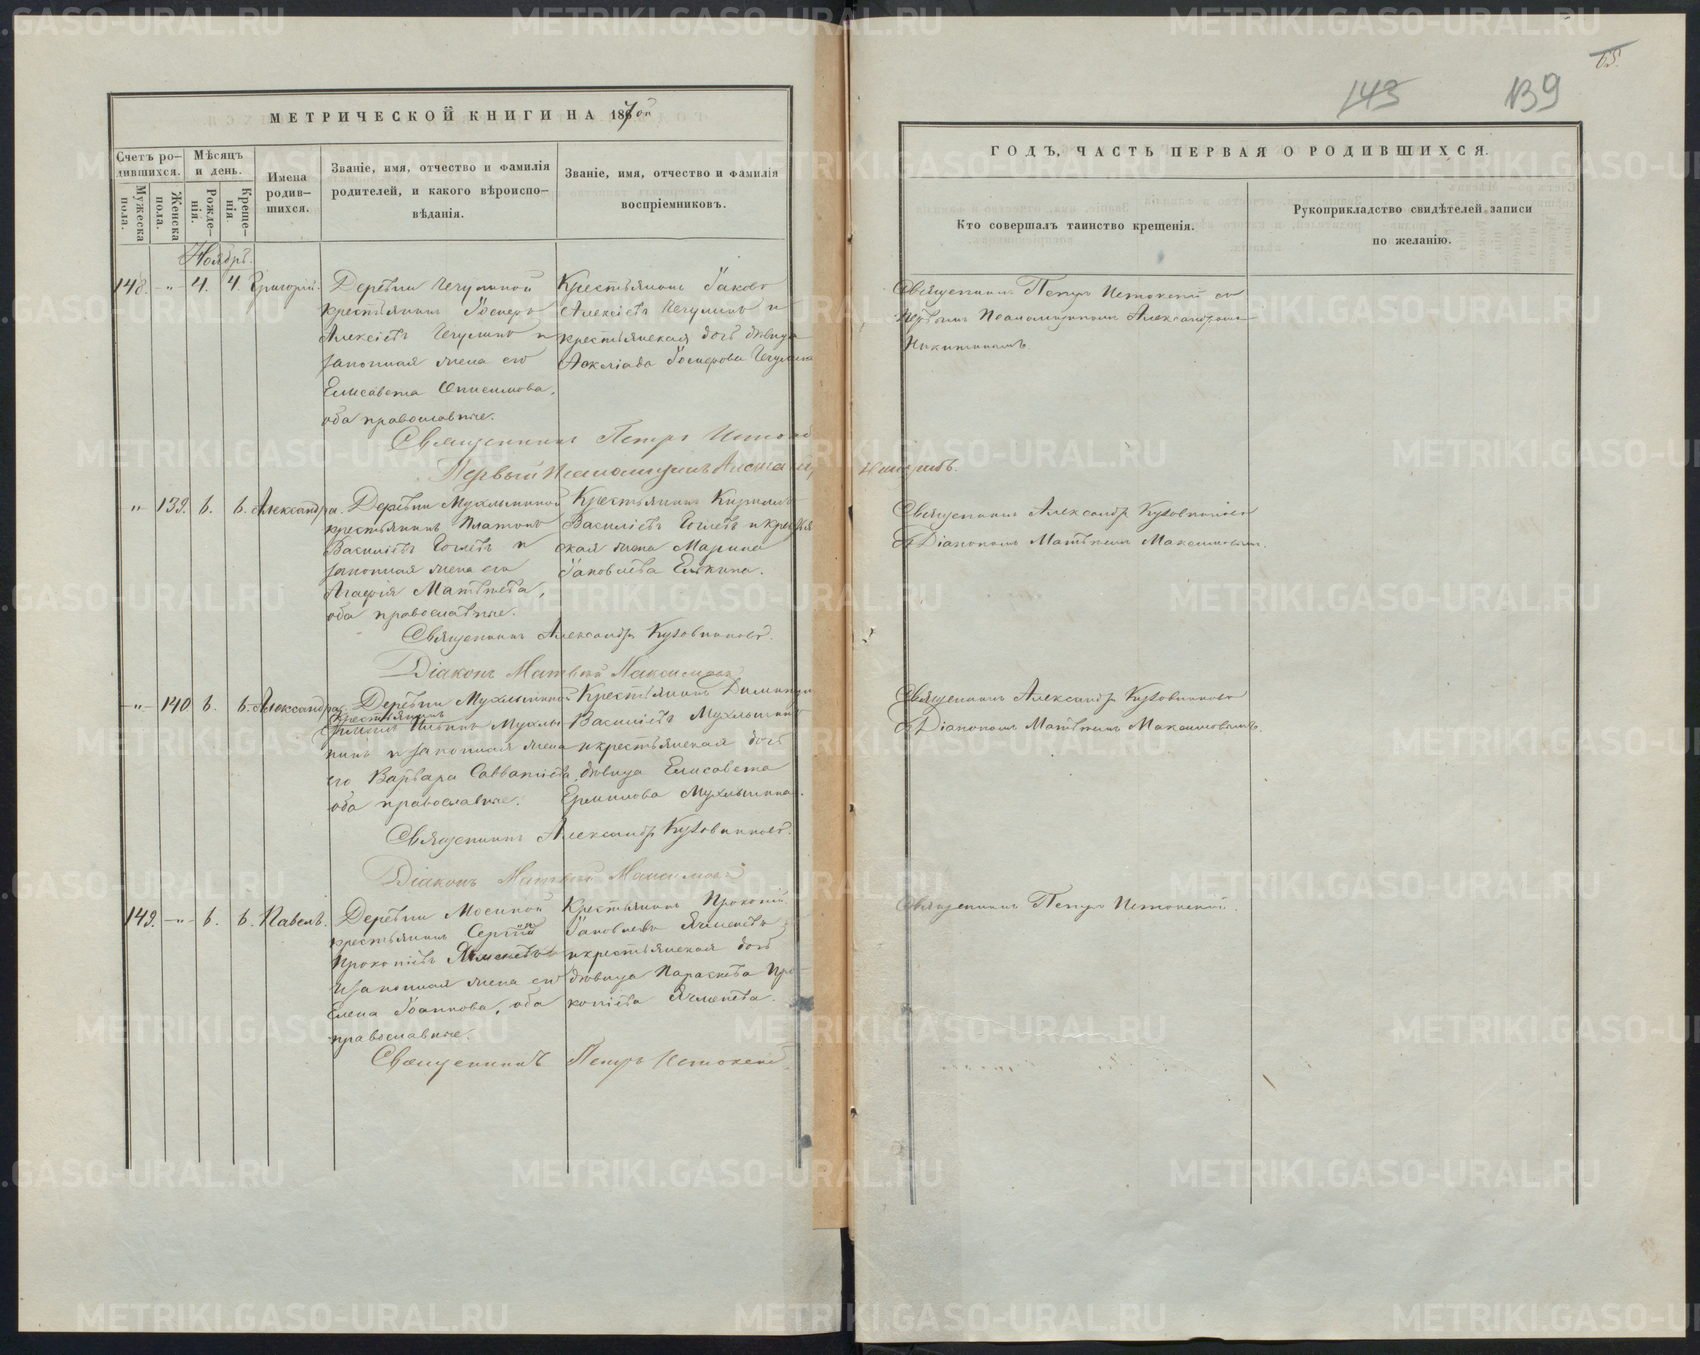 МЕТРИЧЕСКОЙ КНИГИ НА 1870й
Счетъ ро-
дившихся.
Мѣсяцъ
и день.
Мужеска
пола.
Женска
пола.
Рожде-
нія.
Креще-
нія.
Имена
родив-
шихся.
Званіе, имя, отчество и фамилія
родителей, и какого вѣроиспо-
вѣданія.
Званіе, имя, отчество и фамилія
воспріемниковъ.
Ноябрь.
148. -"- 4. 4. Григорій.
Деревни Чечулиной
крестьянинъ
Алексіевъ Чечулинъ и
законная жена его
Елисавета Онисимова,
оба православные.
Крестьянинъ Іаковъ
Алексіевъ Чечулинъ и
крестьянская дочь дѣвица
Чечулина
Священникъ Петръ
Первый Псаломщикъ
-"- 139. 6. 6. Александра.
Деревни Мухлыниной
крестьянинъ Платонъ
Василіевъ и
законная жена его
Агафія Матѳіева,
оба православные.
Крестьянинъ Кириллъ
Василіевъ
ская жена Марина
Іаковлева Елькина.
Священникъ Александръ Кузовниковъ.
Діаконъ Матвѣй Максимовъ
-"- 140 6. 6. Александра.
Деревни Мухлыниной
Крестьянинъ
Мухлы
нинъ и законная жена
его Варвара Савватіева,
оба православные.
Крестьянинъ
Василіевъ Мухлынинъ
и крестьянская дочь
дѣвица Елисавета
Ермилова Мухлынина.
Священникъ Александръ Кузовниковъ.
Діаконъ Матвѣй Максимовъ
149. -"- 6. 6. Павелъ.
Деревни Мосиной
крестьянинъ Сергій
Прокопіевъ
и законная жена его
Елена Іоаннова, оба
православные.
Крестьянинъ Прокопій
Іаковлевъ Ячменевъ
и крестьянская дочь
дѣвица Параскева Про-
копіева Ячменева.
Священникъ Петръ
65.
143 139
ГОДЪ, ЧАСТЬ ПЕРВАЯ О РОДИВШИХСЯ.
Кто совершалъ таинство крещенія.
Рукоприкладство свидѣтелей записи
по желанію.
Священникъ Петръ съ
Первымъ Псаломщикомъ Александромъ
Никитинымъ
Священникъ Александръ Кузовниковъ
съ Діакономъ Матвѣемъ Максимовымъ.
Священникъ Александръ Кузовниковъ
съ Діакономъ Матвѣемъ Максимовымъ.
Священникъ Петръ
METRIKI.GASO-URAL.RU